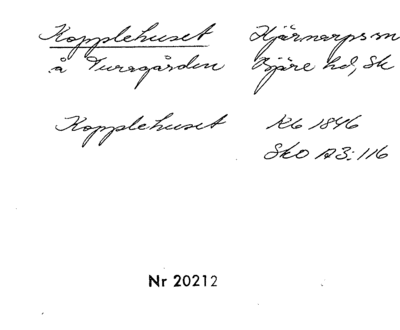 Kopplehuset Hjärnarps sn
å Turagården Bjäre hd, Sk
Kopplehuset Kb 1846
Sko A3:116
Nr 20212